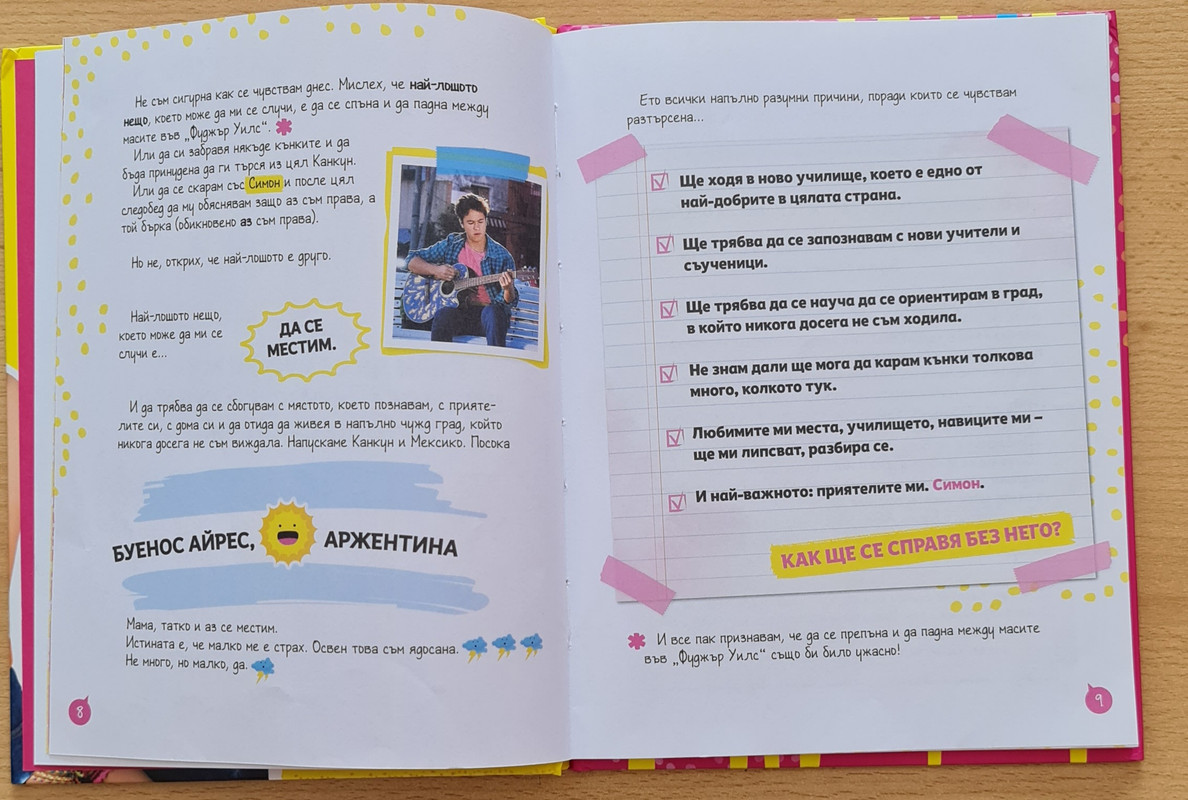 Не съм сигурна как се чувствам днес. Мислех, че най-лошото
нещо, което може да ми се случи, е да се спъна и да падна между
масите във „Фуджър Уилс“. *
Или да си забравя някъде кънките и да
бъда принудена да ги търся из цял Канкун.
Или да се скарам със Симон и после цял
следобед да му обяснявам защо аз съм права, а
той бърка (обикновено аз съм права).
Но не, открих, че най-лошото е друго.
Най-лошото нещо,
което може да ми се
случи е...
ДА СЕ
МЕСТИМ.
И да трябва да се сбогувам с мястото, което познавам, с прияте-
лите си, с дома си и да отида да живея в напълно чужд град, който
никога досега не съм виждала. Напускаме Канкун и Мексико. Посока
БУЕНОС АЙРЕС, АРЖЕНТИНА
Мама, татко и аз се местим.
Истината е, че малко ме е страх. Освен това съм ядосана.
Не много, но малко, да.
8
Ето всички напълно разумни причини, поради които се чувствам
разтърсена...
Ще ходя в ново училище, което е едно от
най-добрите в цялата страна.
Ще трябва да се запознавам с нови учители и
съученици.
Ще трябва да се науча да се ориентирам в град,
в който никога досега не съм ходила.
Не знам дали ще мога да карам кънки толкова
много, колкото тук.
Любимите ми места, училището, навиците ми –
ще ми липсват, разбира се.
И най-важното: приятелите ми. Симон.
КАК ЩЕ СЕ СПРАВЯ БЕЗ НЕГО?
* И все пак признавам, че да се препъна и да падна между масите
във „Фуджър Уилс“ също би било ужасно!
9